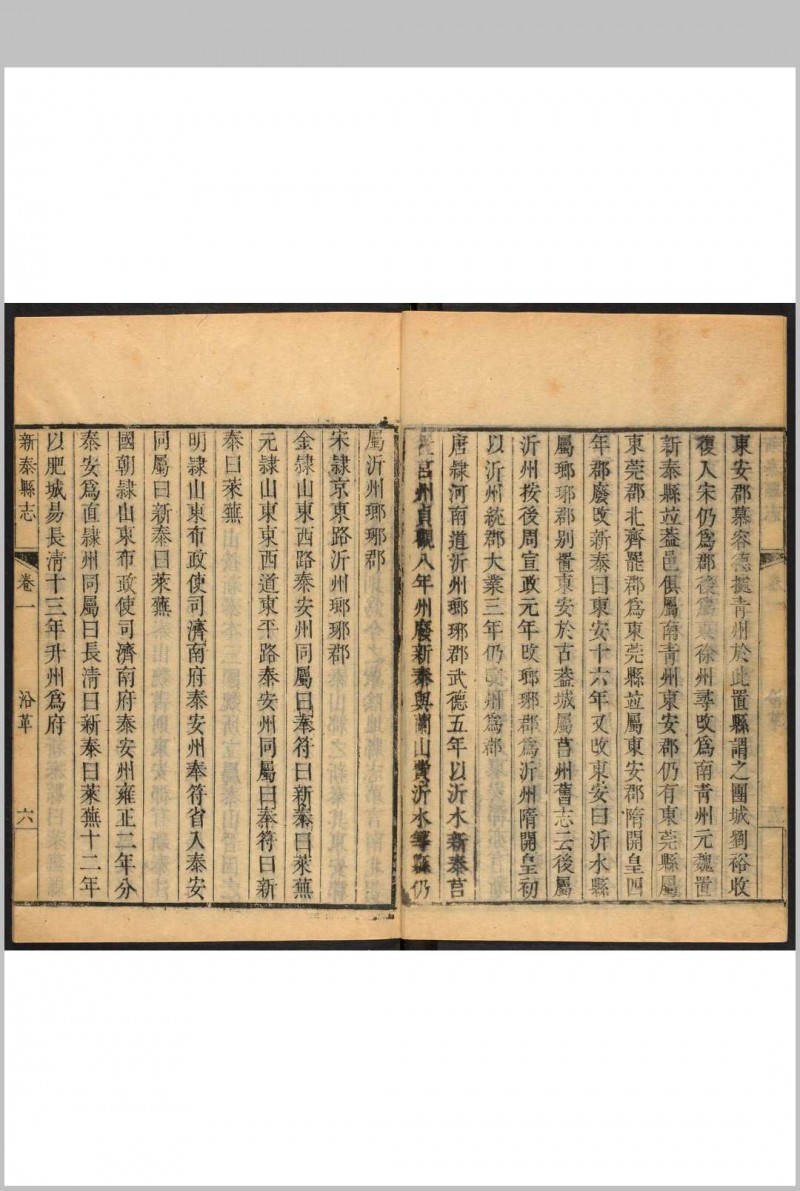 東安郡慕容德據青州於此置縣謂之團城劉裕收
復入宋仍爲郡後爲東徐州尋改爲南青州元魏置
新泰縣竝蓋邑俱屬南青州東安郡仍有東莞縣屬
東莞郡北齊罷郡爲東莞縣竝屬東安郡隋開皇四
年郡廢改新泰曰東安十六年又改東安曰沂水縣
屬瑯琊郡别置東安於古蓋城屬莒州舊志云後屬
沂州按後周宣政元年改瑯琊郡爲沂州隋開皇初
以沂州統郡大業三年仍以州爲郡
唐隸河南道沂州瑯琊郡武德五年以沂水新泰莒
莒州貞觀八年州廢新泰與蘭山費沂水等縣仍
屬沂州瑯琊郡
宋隸京東路沂州瑯琊郡
金隸山東西路泰安州同屬曰奉符曰新泰曰萊蕪
元隸山東東西道東平路泰安州同屬曰奉符曰新
泰曰萊蕪
明隸山東布政使司濟南府泰安州奉符省入泰安
同屬曰新泰曰萊蕪
國朝隸山東布政使司濟南府泰安州雍正二年分
泰安爲直隸州同屬曰長清曰新泰曰萊蕪十二年
以肥城易長清十三年升州爲府
新泰縣志 卷一 沿革 六